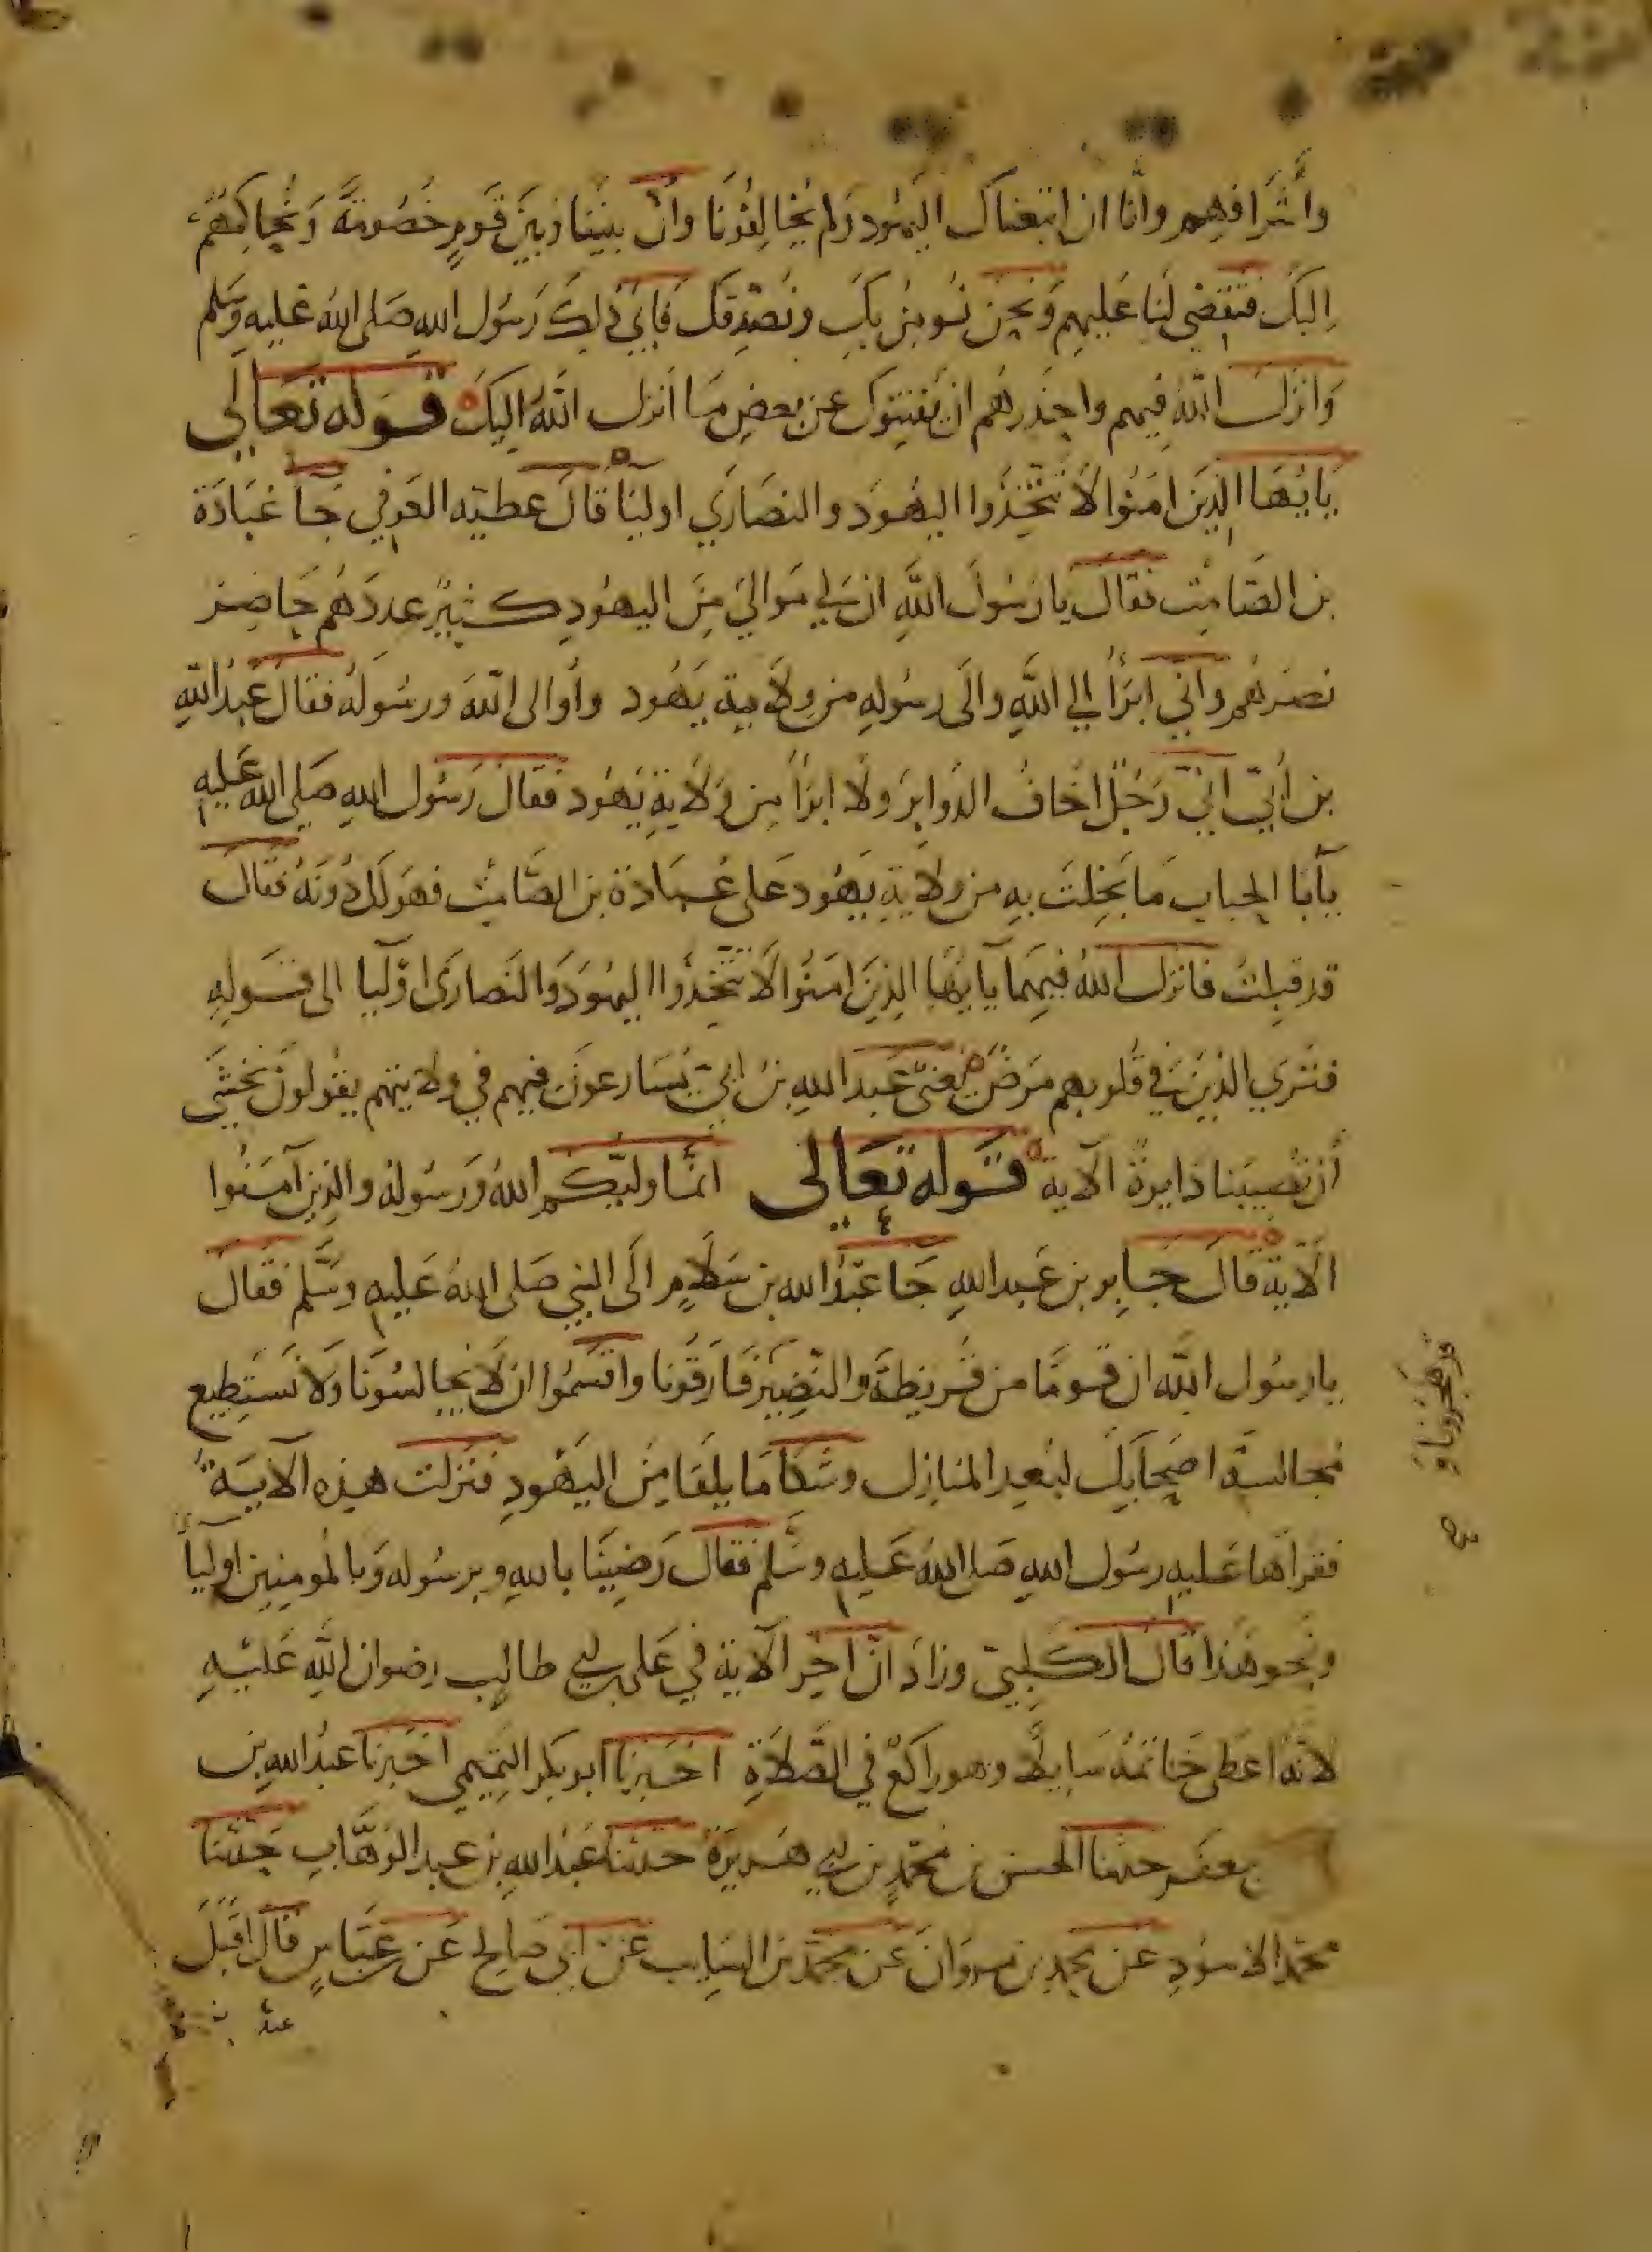 وأشرافهم وانا ان اتبعناك اليهود ولم يخالفونا وان بيننا وبين قوم خصومة ونحاكمهم
اليك فتقضي لنا عليهم ونحن نومن بك ونصدقك فابي ذلك رسول الله صلى الله عليه وسلم
وانزل الله فيهم واحذرهم ان يفتنوك عن بعض ما انزل الله اليك قوله تعالى
يايها الذين امنوا لا تتخذوا اليهود والنصاري اوليا قال عطية العوفي جا عبادة
بن الصامت فقال يا رسول الله ان لي موالي من اليهود كثير عددهم حاضر
نصرهم واني ابرأ الي الله والى رسوله من ولاية يهود وأوالى الله ورسوله فقال عبد الله
بن أبيّ اني رجل اخاف الدواير ولا ابرأ من ولاية يهود فقال رسول الله صلى الله عليه
يآبا الحباب ما بخلت به من ولاية يهود على عبادة بن الصامت فهو لك دونه فقال
قد قبلت فانزل الله فيهما يآيها الذين امنوا لا تتخذوا اليهود والنصارى اوليا الى قوله
فترى الذين في قلوبهم مرض يعني عبد الله بن ابي يسارعون فيهم في ولايتهم يقولون نخشى
أن تصيبنا دايرة الآية قوله تعالى انما وليكم الله ورسوله والذين آمنوا
الآية قال جابر بن عبد الله جا عبد الله بن سلام الى النبي صلى الله عليه وسلم فقال
يا رسول الله ان قوما من قريظة والنضير فارقونا واقسموا ان لا يجالسونا ولا نستطيع
مجالسة اصحابك لبعد المنازل وشكا ما يلقا من اليهود فنزلت هذه الآية
فقرأها عليه رسول الله صلى الله عليه وسلم فقال رضينا بالله وبرسوله وبالمومنين اوليأ
ونحو هذا قال الكلبي وزاد ان اخر الآية في على بن ابي طالب رضوان الله عليه
لانه اعطى خاتمه سايلا وهو راكع في الصلاة اخبرنا ابو بكر التميمي اخبرنا عبد الله بن
جعفر حدثنا الحسن بن محمد بن ابي هريرة حدثنا عبد الله بن عبد الوهاب حدثنا
محمد الاسود عن محمد بن مروان عن محمد بن السايب عن ابي صالح عن عباس قال اقبل
عبد
قد هجرونا و
صح